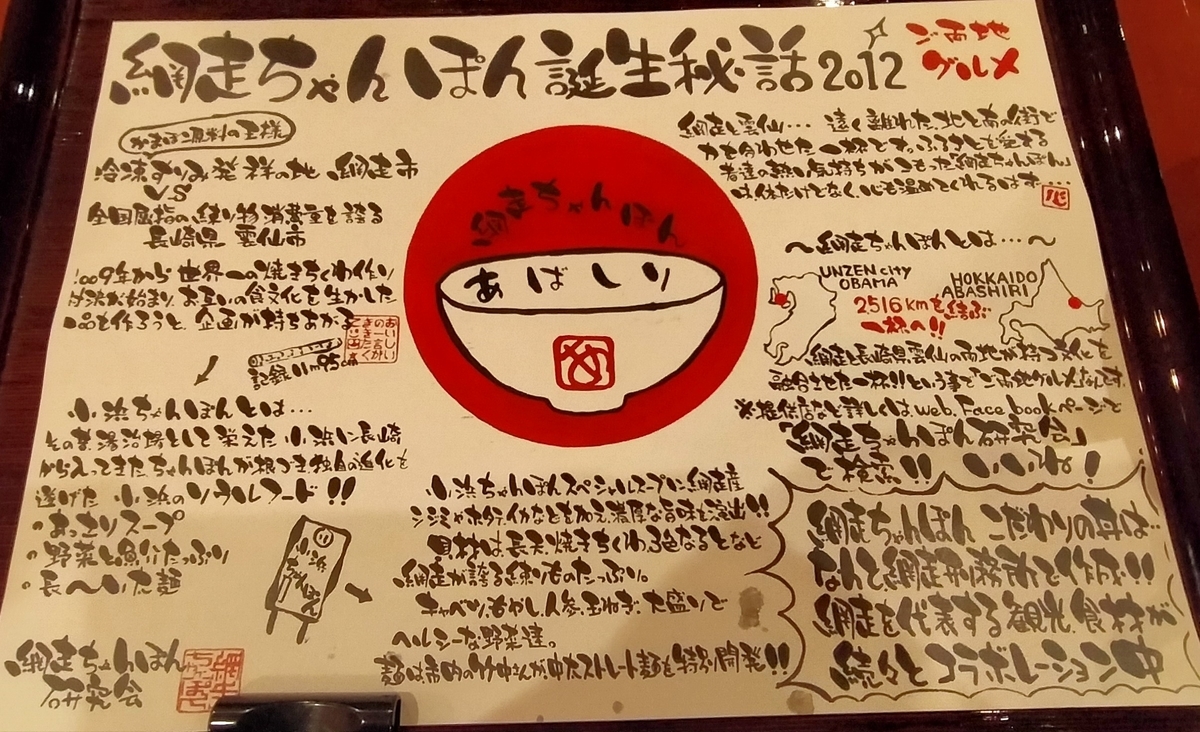 網走ちゃんぽん誕生秘話2012
ご当地
グルメ
かまぼこ原料の王様
冷凍すりみ発祥の地 網走市
VS
全国屈指の練り物消費量を誇る
長崎県 雲仙市
2009年から世界一の焼きちくわ作り
お互いの食文化を生かした
一品を作ろうと、企画が持ちあがる
記録11m95cm
小浜ちゃんぽんとは…
その昔湯治場として栄えた小浜に長崎
から入ってきたちゃんぽんが根づき独自の進化を
遂げた 小浜のソウルフード!!
・あっさりスープ
・野菜と魚介たっぷり
・長〜いた麺
小浜
ちゃんぽん
網走ちゃんぽん
研究会
網走ちゃんぽん
あばしり
小浜ちゃんぽんスペシャルスープに網走産
シジミやホタテ、イカなどを加え、濃厚な旨味を演出!!
具材は長天、焼きちくわ、3色なるとなど
網走が誇る練りものたっぷり。
キャベツ、もやし、人参、玉ねぎ、大盛りで
ヘルシーな野菜達。
麺は市内の竹中さんが、中太ストレート麺を特別開発!!
網走と雲仙… 遠く離れた北と南の街で
力を合わせた一杯です。ふるさとを愛する
者達の熱い気持ちがこもった「網走ちゃんぽん」
は、体だけでなく、心も温めてくれるはず…
〜網走ちゃんぽんとは…〜
UNZEN city
OBAMA
HOKKAIDO
ABASHIRI
2516kmを結ぶ
一杯の!!
網走と長崎県雲仙の両地が持つ文化を
融合させた一杯!!という事で「ご当地グルメ」なんです。
※提供店など詳しくは、web、Face bookページで
「網走ちゃんぽん研究会」
で検索!! いいね!
網走ちゃんぽん こだわりの丼は
なんと網走刑務所で作成!!
網走を代表する観光、食材が
続々とコラボレーション中